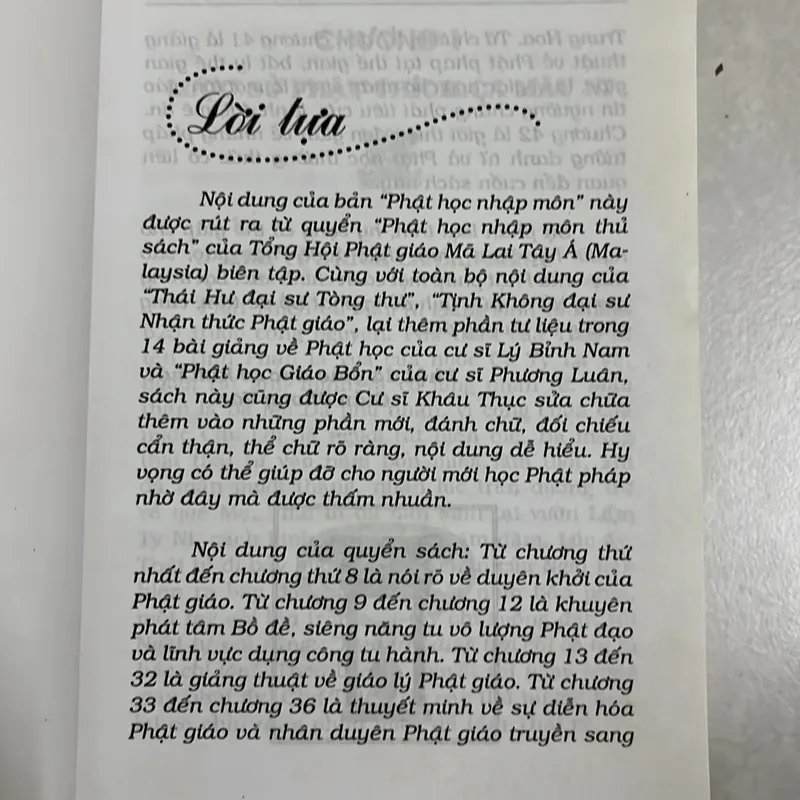 Lời tựa
Nội dung của bản “Phật học nhập môn” này
được rút ra từ quyển “Phật học nhập môn thủ
sách” của Tổng Hội Phật giáo Mã Lai Tây Á (Ma-
laysia) biên tập. Cùng với toàn bộ nội dung của
“Thái Hư đại sư Tòng thư”, “Tịnh Không đại sư
Nhận thức Phật giáo”, lại thêm phần tư liệu trong
14 bài giảng về Phật học của cư sĩ Lý Bỉnh Nam
và “Phật học Giáo Bổn” của cư sĩ Phương Luân,
sách này cũng được Cư sĩ Khâu Thục sửa chữa
thêm vào những phần mới, đánh chữ, đối chiếu
cẩn thận, thể chữ rõ ràng, nội dung dễ hiểu. Hy
vọng có thể giúp đỡ cho người mới học Phật pháp
nhờ đây mà được thấm nhuần.
Nội dung của quyển sách: Từ chương thứ
nhất đến chương thứ 8 là nói rõ về duyên khởi của
Phật giáo. Từ chương 9 đến chương 12 là khuyên
phát tâm Bồ đề, siêng năng tu vô lượng Phật đạo
và lĩnh vực dụng công tu hành. Từ chương 13 đến
32 là giảng thuật về giáo lý Phật giáo. Từ chương
33 đến chương 36 là thuyết minh về sự diễn hóa
Phật giáo và nhân duyên Phật giáo truyền sang